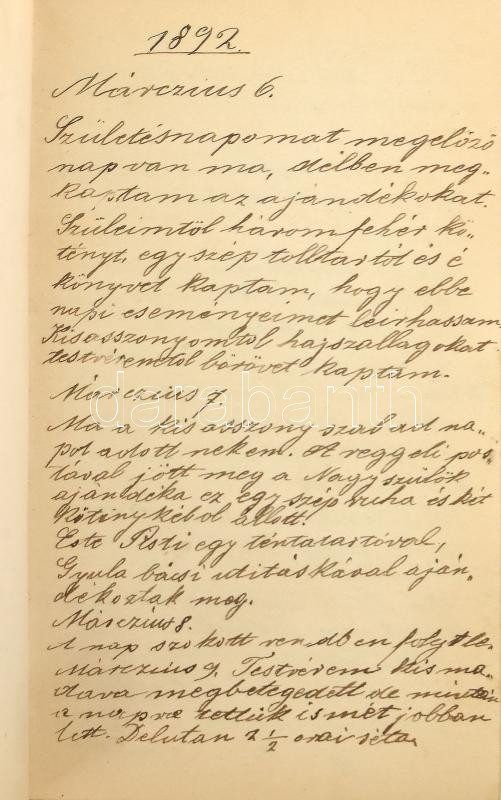 1892.
Márczius 6.
Születésnapomat megelőző
nap van ma, délben meg-
kaptam az ajándékokat.
Szüleimtöl három fehér kö-
tényt, egy szép tolltartót és é
könyvet kaptam, hogy ebbe
napi eseményeimet leirhassam
Kisasszonyomtol hajszallagokat
testvéremtöl börövet kaptam.
Márczius 7.
Ma a kisasszony szabad na-
pot adott nekem. A reggeli pos-
tával jött meg a Nagyszülök
ajándéka ez egy szép ruha és két
kötinykéböl állott.
Este Pisti egy téntatartóval,
Gyula bácsi utitáskával aján-
dékoztak meg.
Márczius 8.
A nap szokott rendben folyt le.
Márczius 9. Testvérem kis ma-
dava megbetegedett de miután
a napra tettük ismét jobban
lett. Délutan 2 1/2 orai séta
darabanth